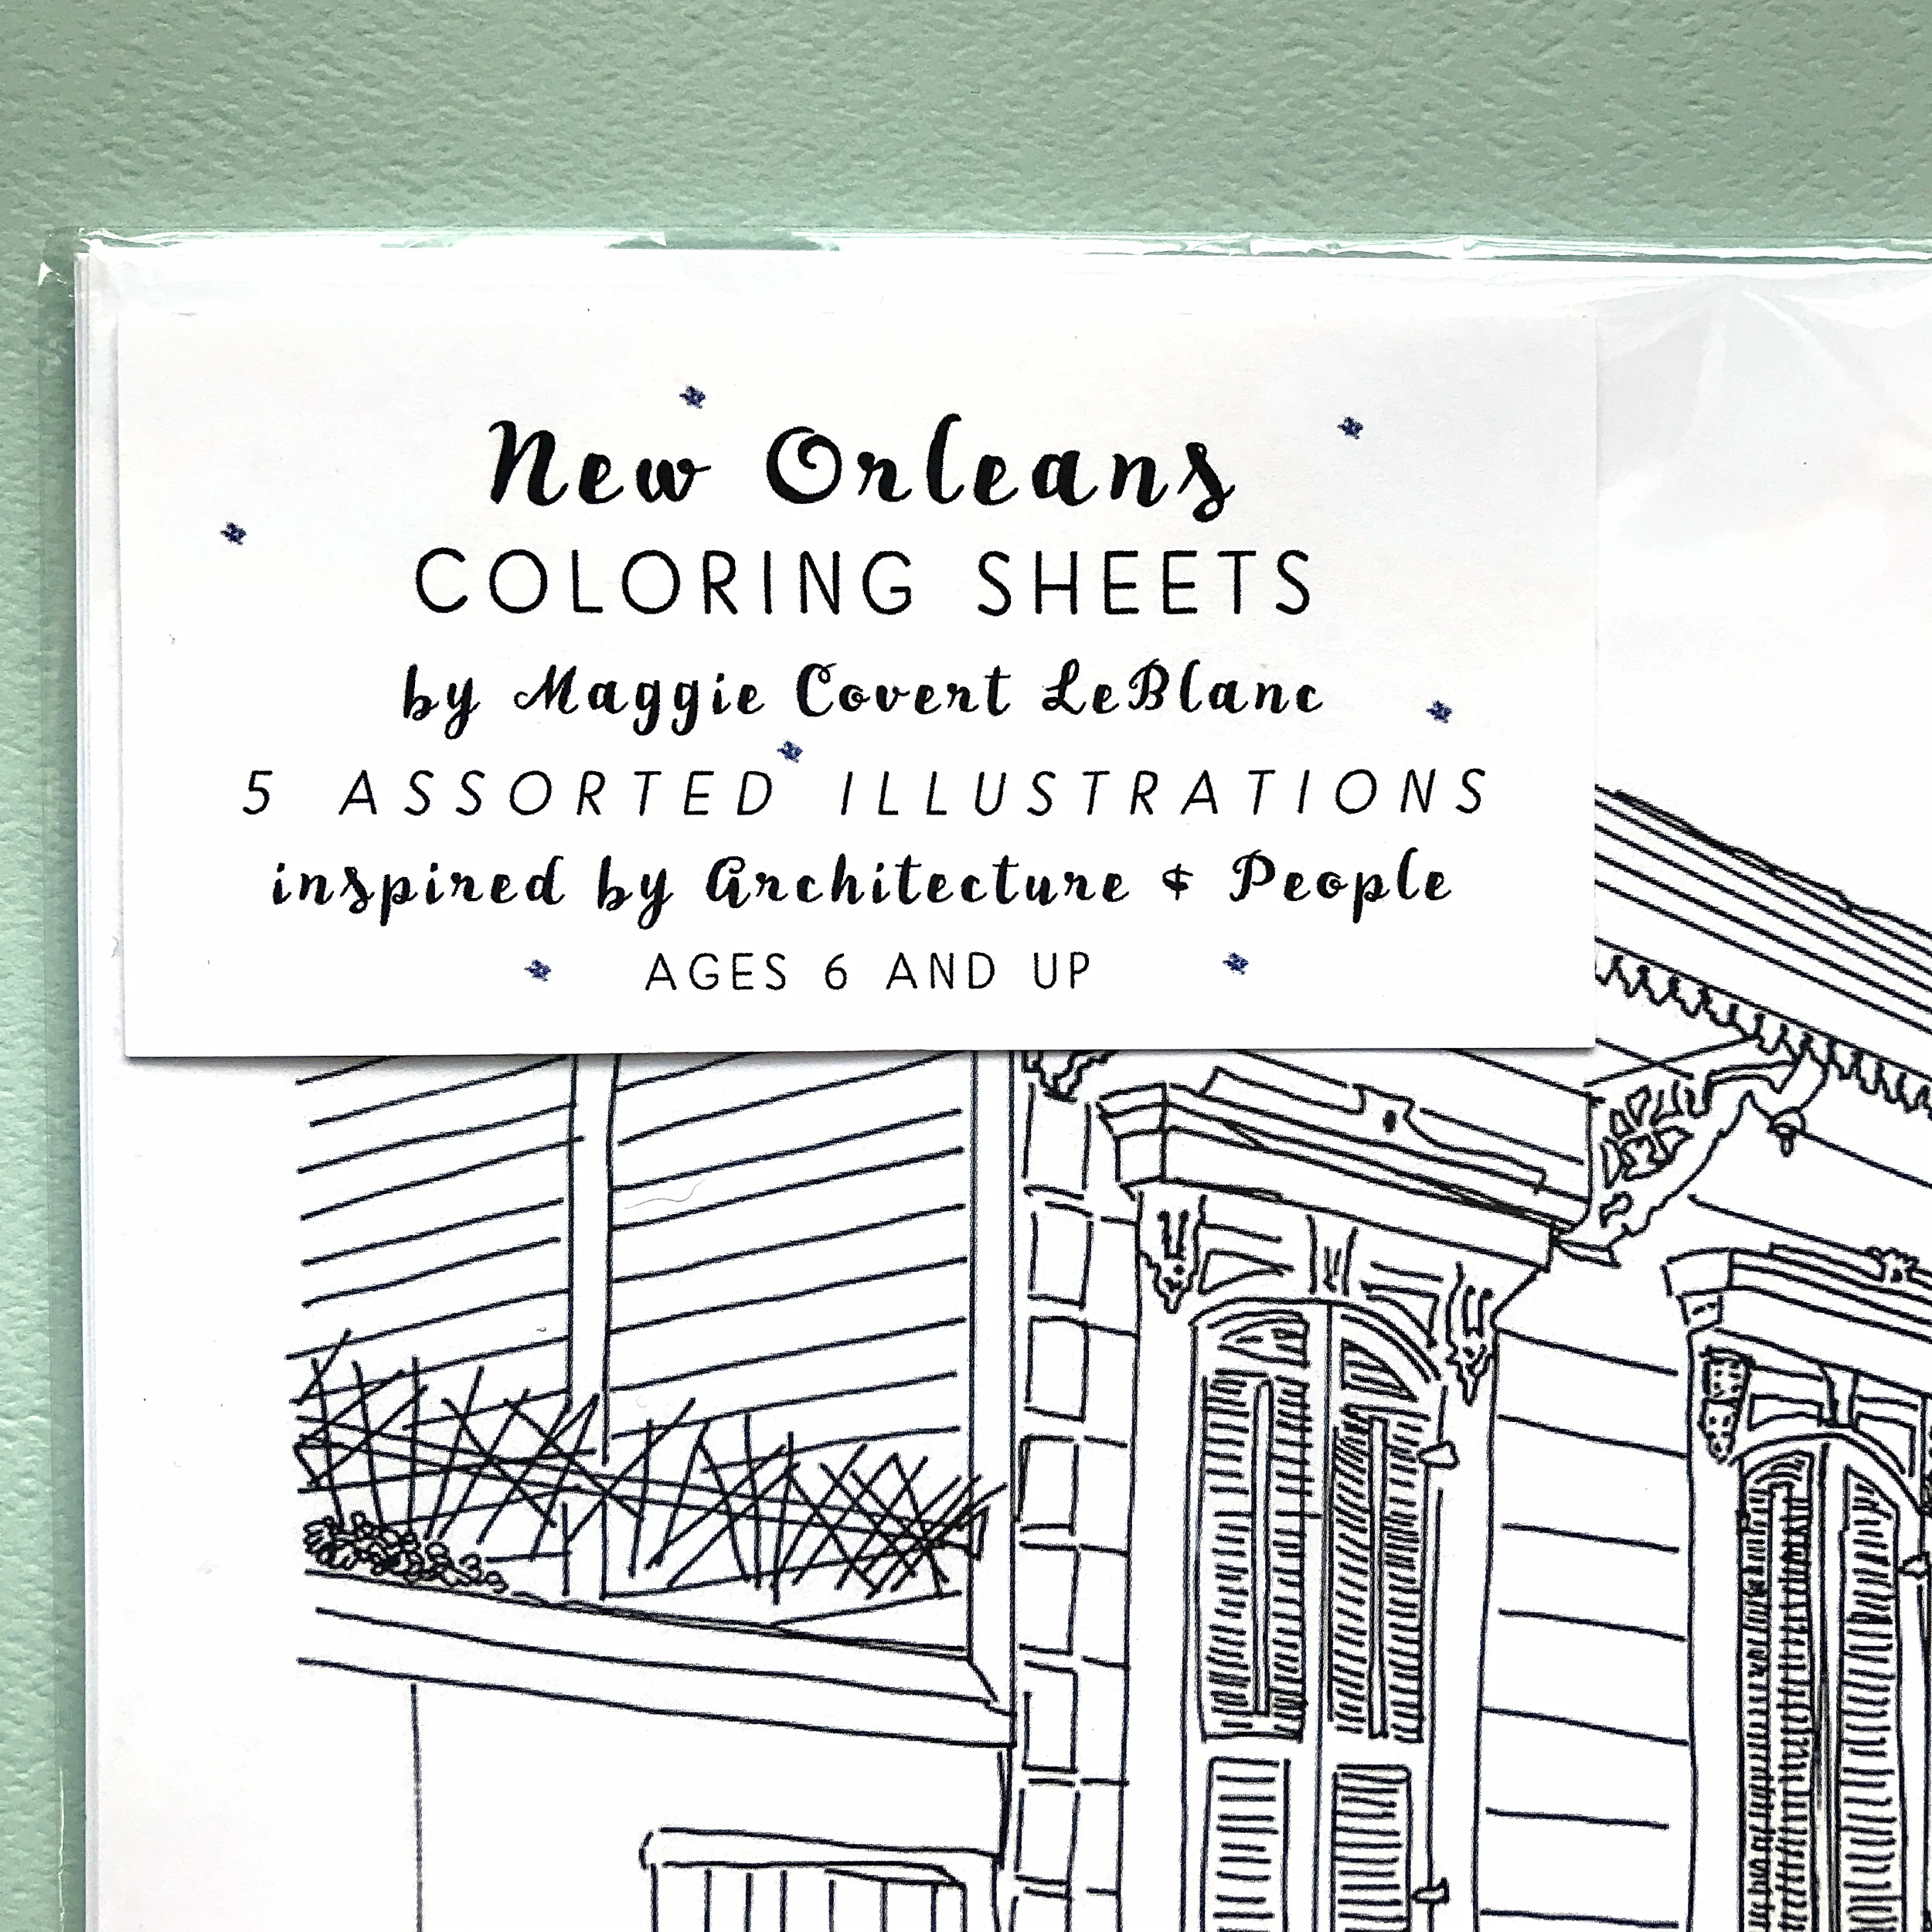 New Orleans
COLORING SHEETS
by Maggie Covert LeBlanc
5 ASSORTED ILLUSTRATIONS
inspired by Architecture & People
AGES 6 AND UP